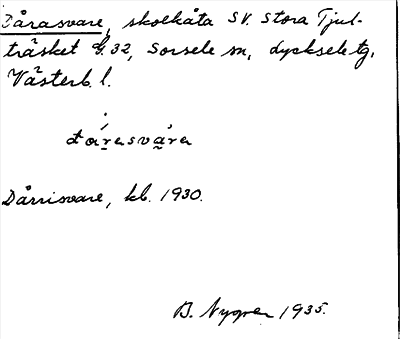 Dårasvare, skolkåta SV. Stora Tjul-
träsket G 32, Sorsele sn, Lycksele tg,
Västerb. l.
dárasvȧra
Dårrisvare, kb. 1930.
B. Nygren 1935.